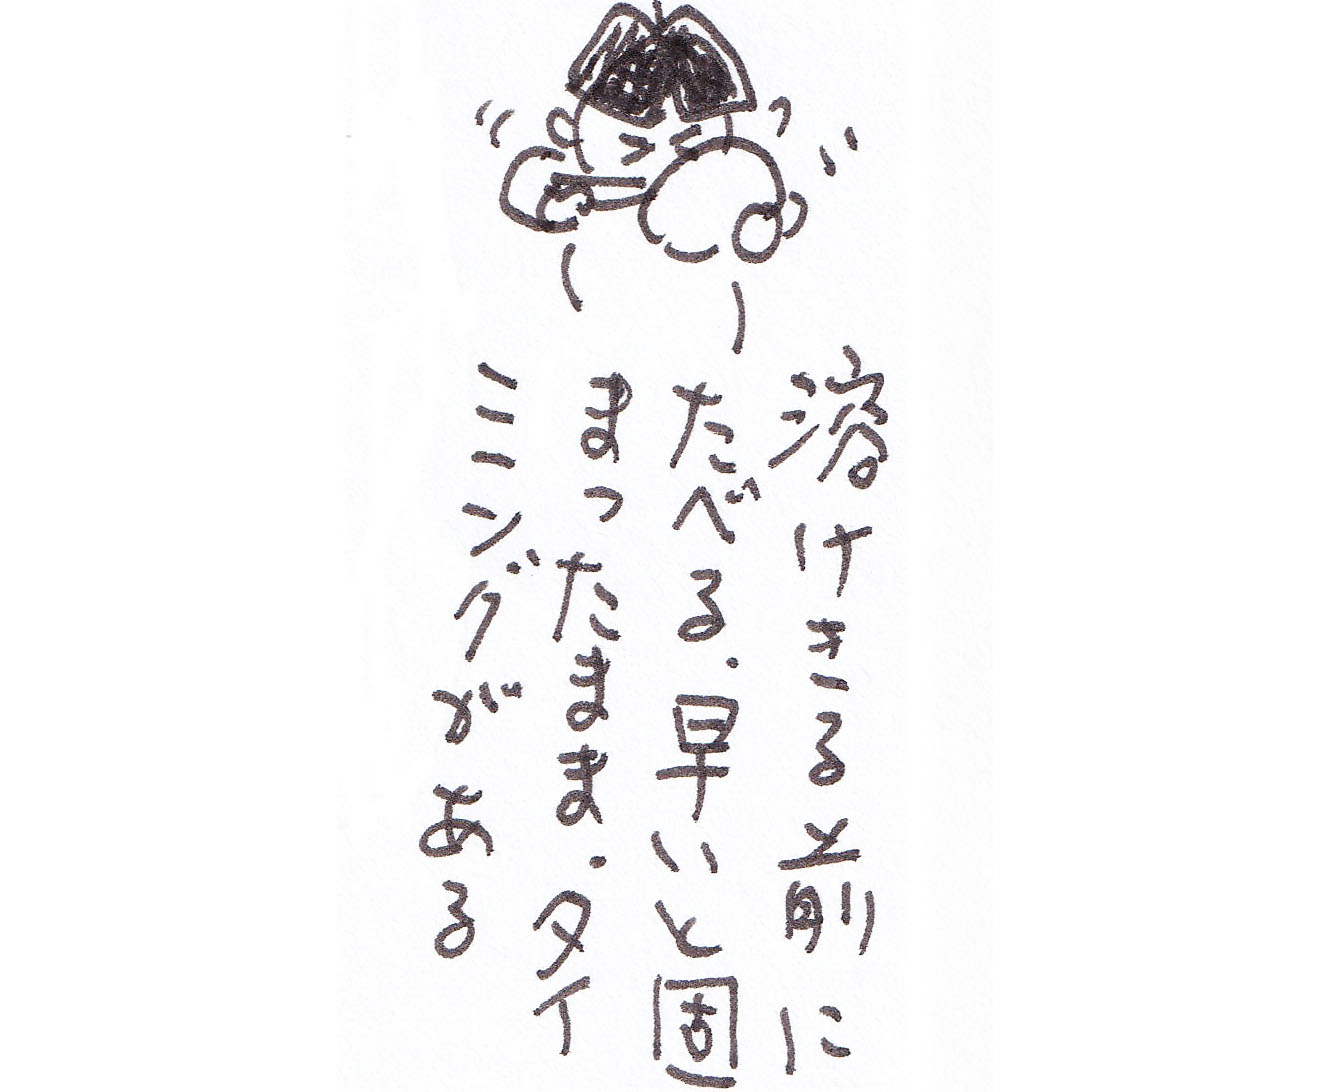 溶けきる前に
たべる.早いと固
まったまま.タイ
ミングがある